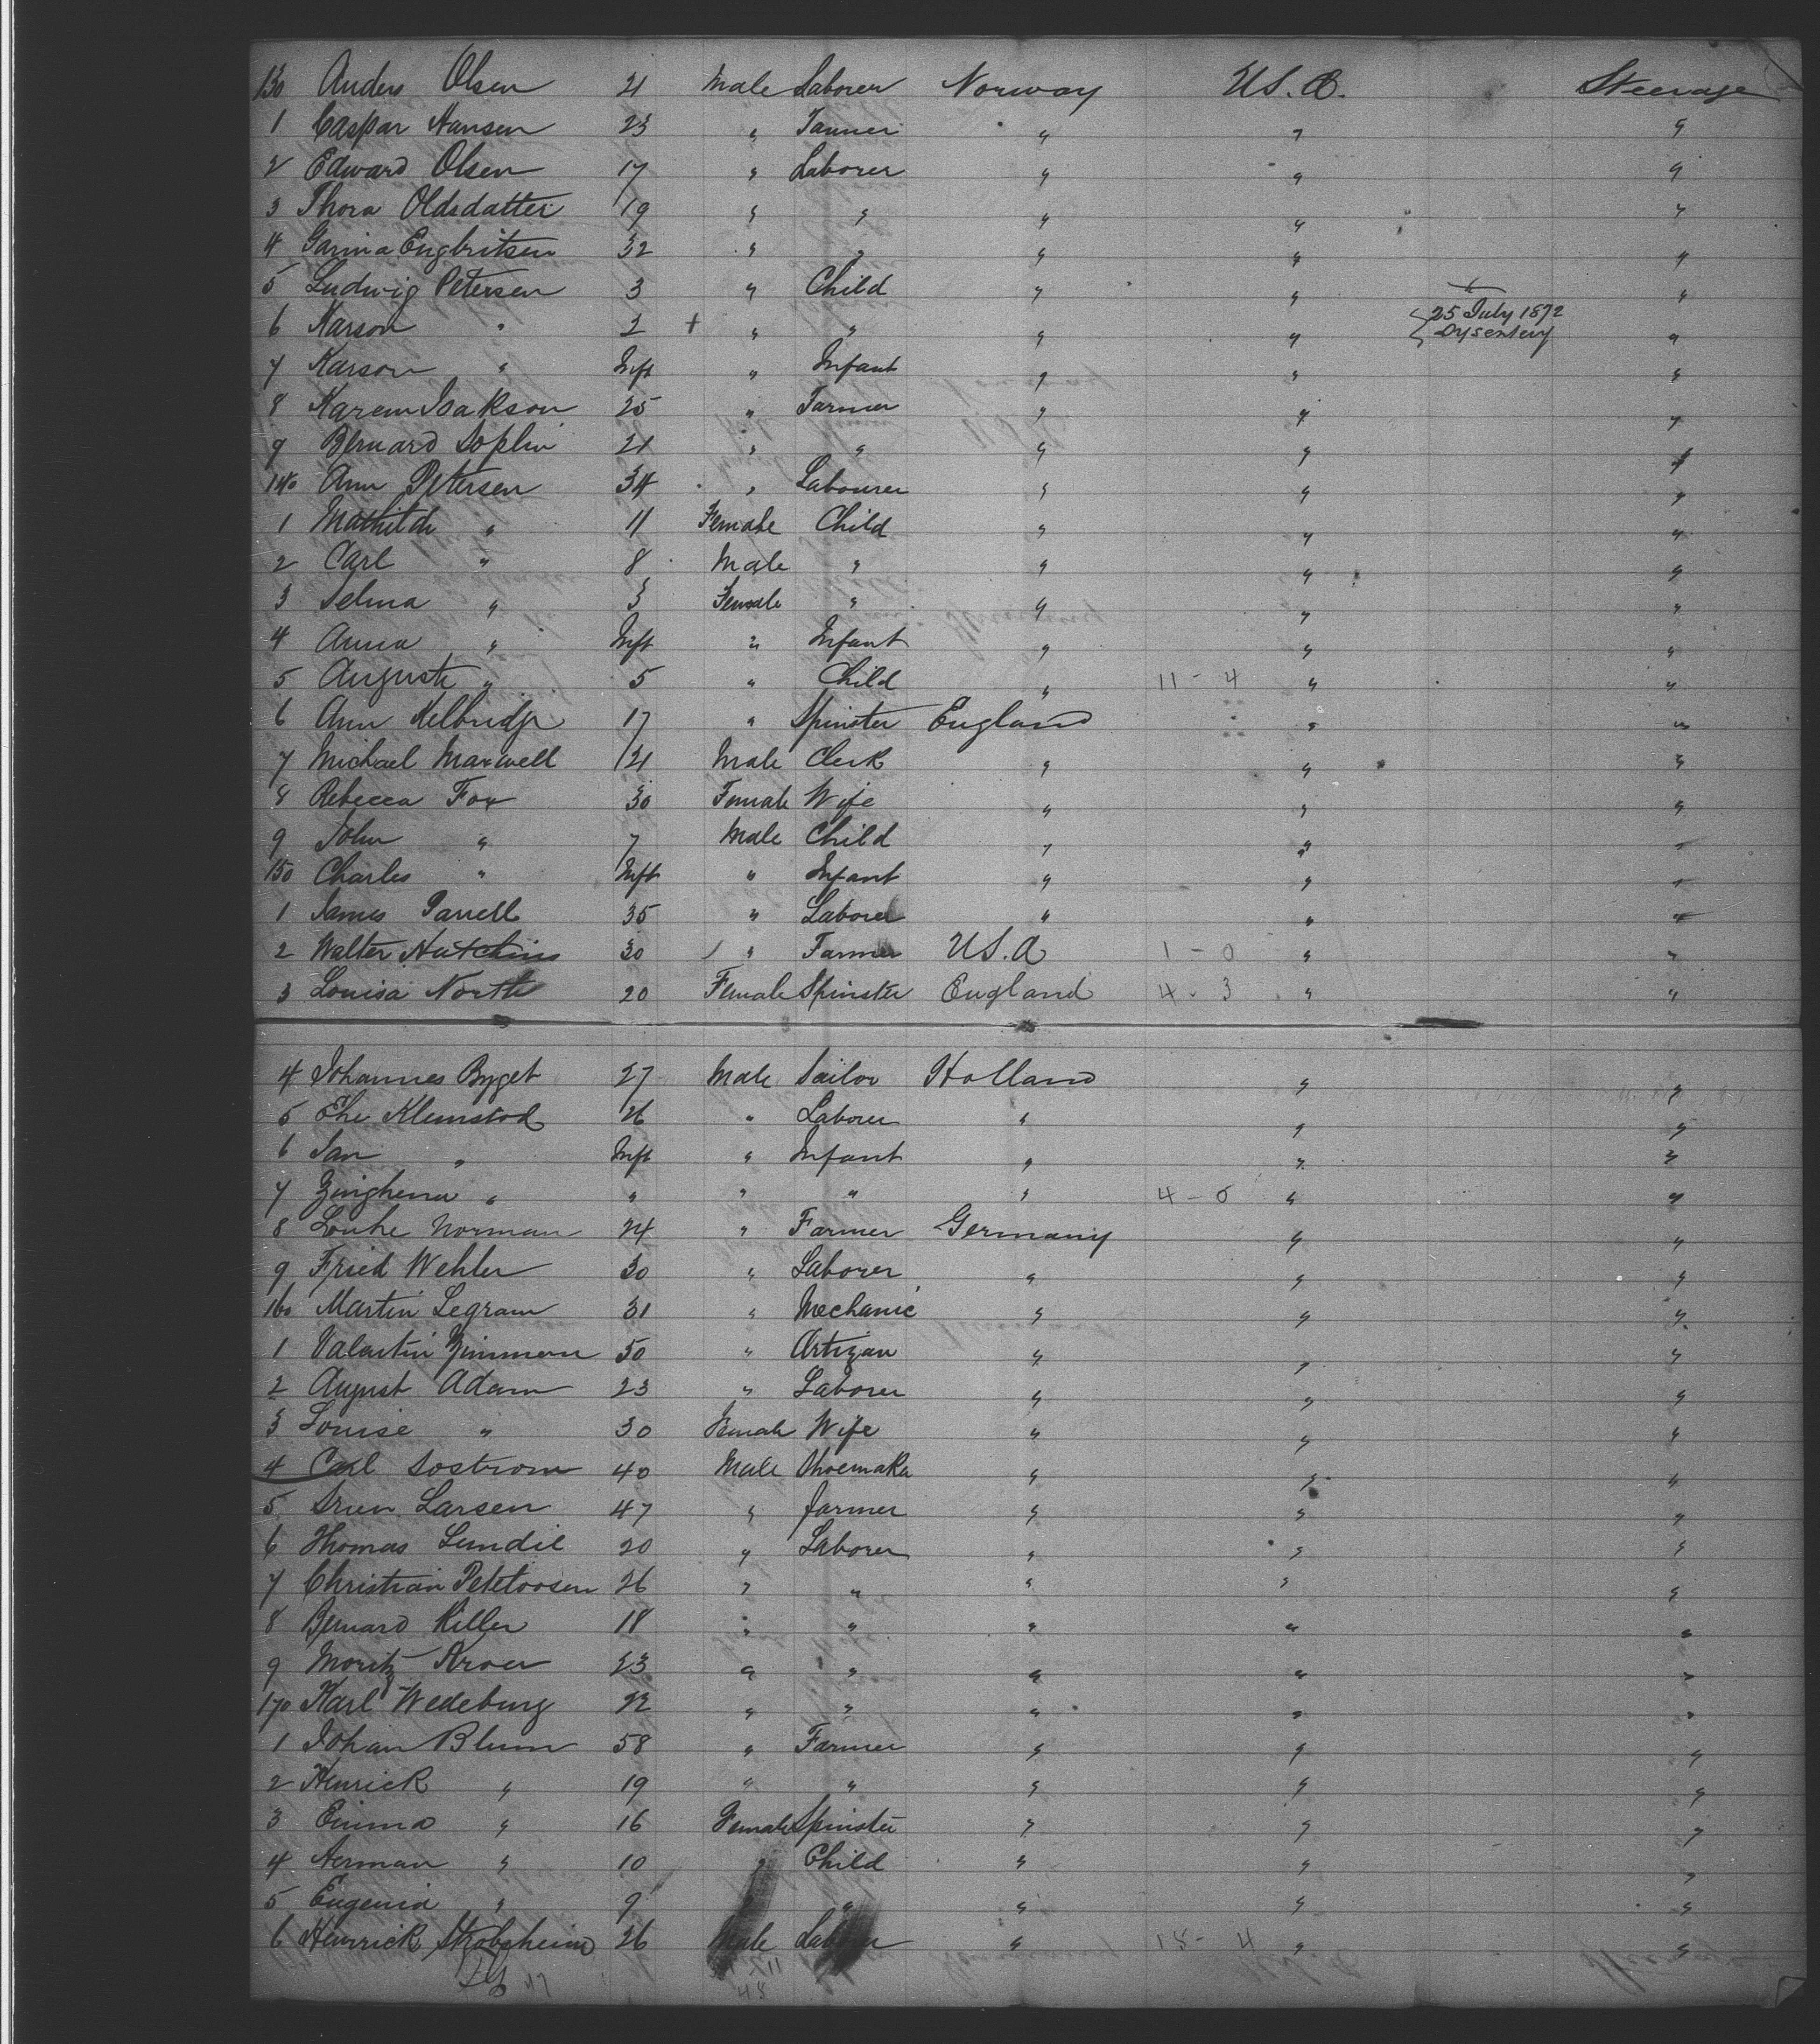 130 Anders Olsen 21 Male Laborer Norway U.S.A. Steerage
1 Caspar Hansen 23 " Farmer " " "
2 Edward Olsen 17 " Laborer " " "
3 Thora Oldsdatter 19 " " " " "
4 Garina Engbritsen 32 " " " " "
5 Ludwig Petersen 3 " Child " " "
6 Karson " 2 + " " " " 25 July 1872 Dysentery "
7 Karson " Inft " Infant " " "
8 Karem Isakson 25 " Farmer " " "
9 Bernard Soplin 21 " " " " "
140 Ann Petersen 34 " Labourer " " "
1 Mathilde " 11 Female Child " " "
2 Carl " 8 Male " " " "
3 Selma " 3 Female " " " "
4 Anna " Inft " Infant " " "
5 Auguste " 5 " Child " 11 - 4 " "
6 Ann Kelbridge 17 " Spinster England " "
7 Michael Maxwell 21 Male Clerk " " "
8 Rebecca Fox 30 Female Wife " " "
9 John " 7 Male Child " " "
150 Charles " Inft " Infant " " "
1 James Farrell 35 " Laborer " " "
2 Walter Hutchins 30 " Farmer U.S.A 1 - 0 " "
3 Louisa North 20 Female Spinster England 4 - 3 " "
4 Johannes Byget 27 Male Sailor Holland " "
5 Ehe Klemstod 26 " Laborer " " "
6 Jan " Inft " Infant " " "
7 Zinghena " " " " " 4 - 0 " "
8 Louhe Norman 24 " Farmer Germany " "
9 Fried Wehler 30 " Laborer " " "
160 Martin Legram 31 " Mechanic " " "
1 Valentin Zimmern 50 " Artizan " " "
2 August Adam 23 " Laborer " " "
3 Louise " 30 Female Wife " " "
4 Carl Sostrom 40 Male Shoemaker " " "
5 Larsen 47 " farmer " " "
6 Thomas Lundil 20 " Laborer " " "
7 Christian Petetoosen 26 " " " " "
8 Bernard Killer 18 " " " " "
9 Moritz Aroer 23 " " " " "
170 Karl Wedeburg 22 " " " " "
1 Johan Blum 58 " Farmer " " "
2 Henrick " 19 " " " " "
3 Emma " 16 Female Spinster " " "
4 Herman " 10 " Child " " "
5 Eugenia " 9 " " " "
6 Henrick Strobsheim 26 Male Laborer " 18 - 4 " "
47 48